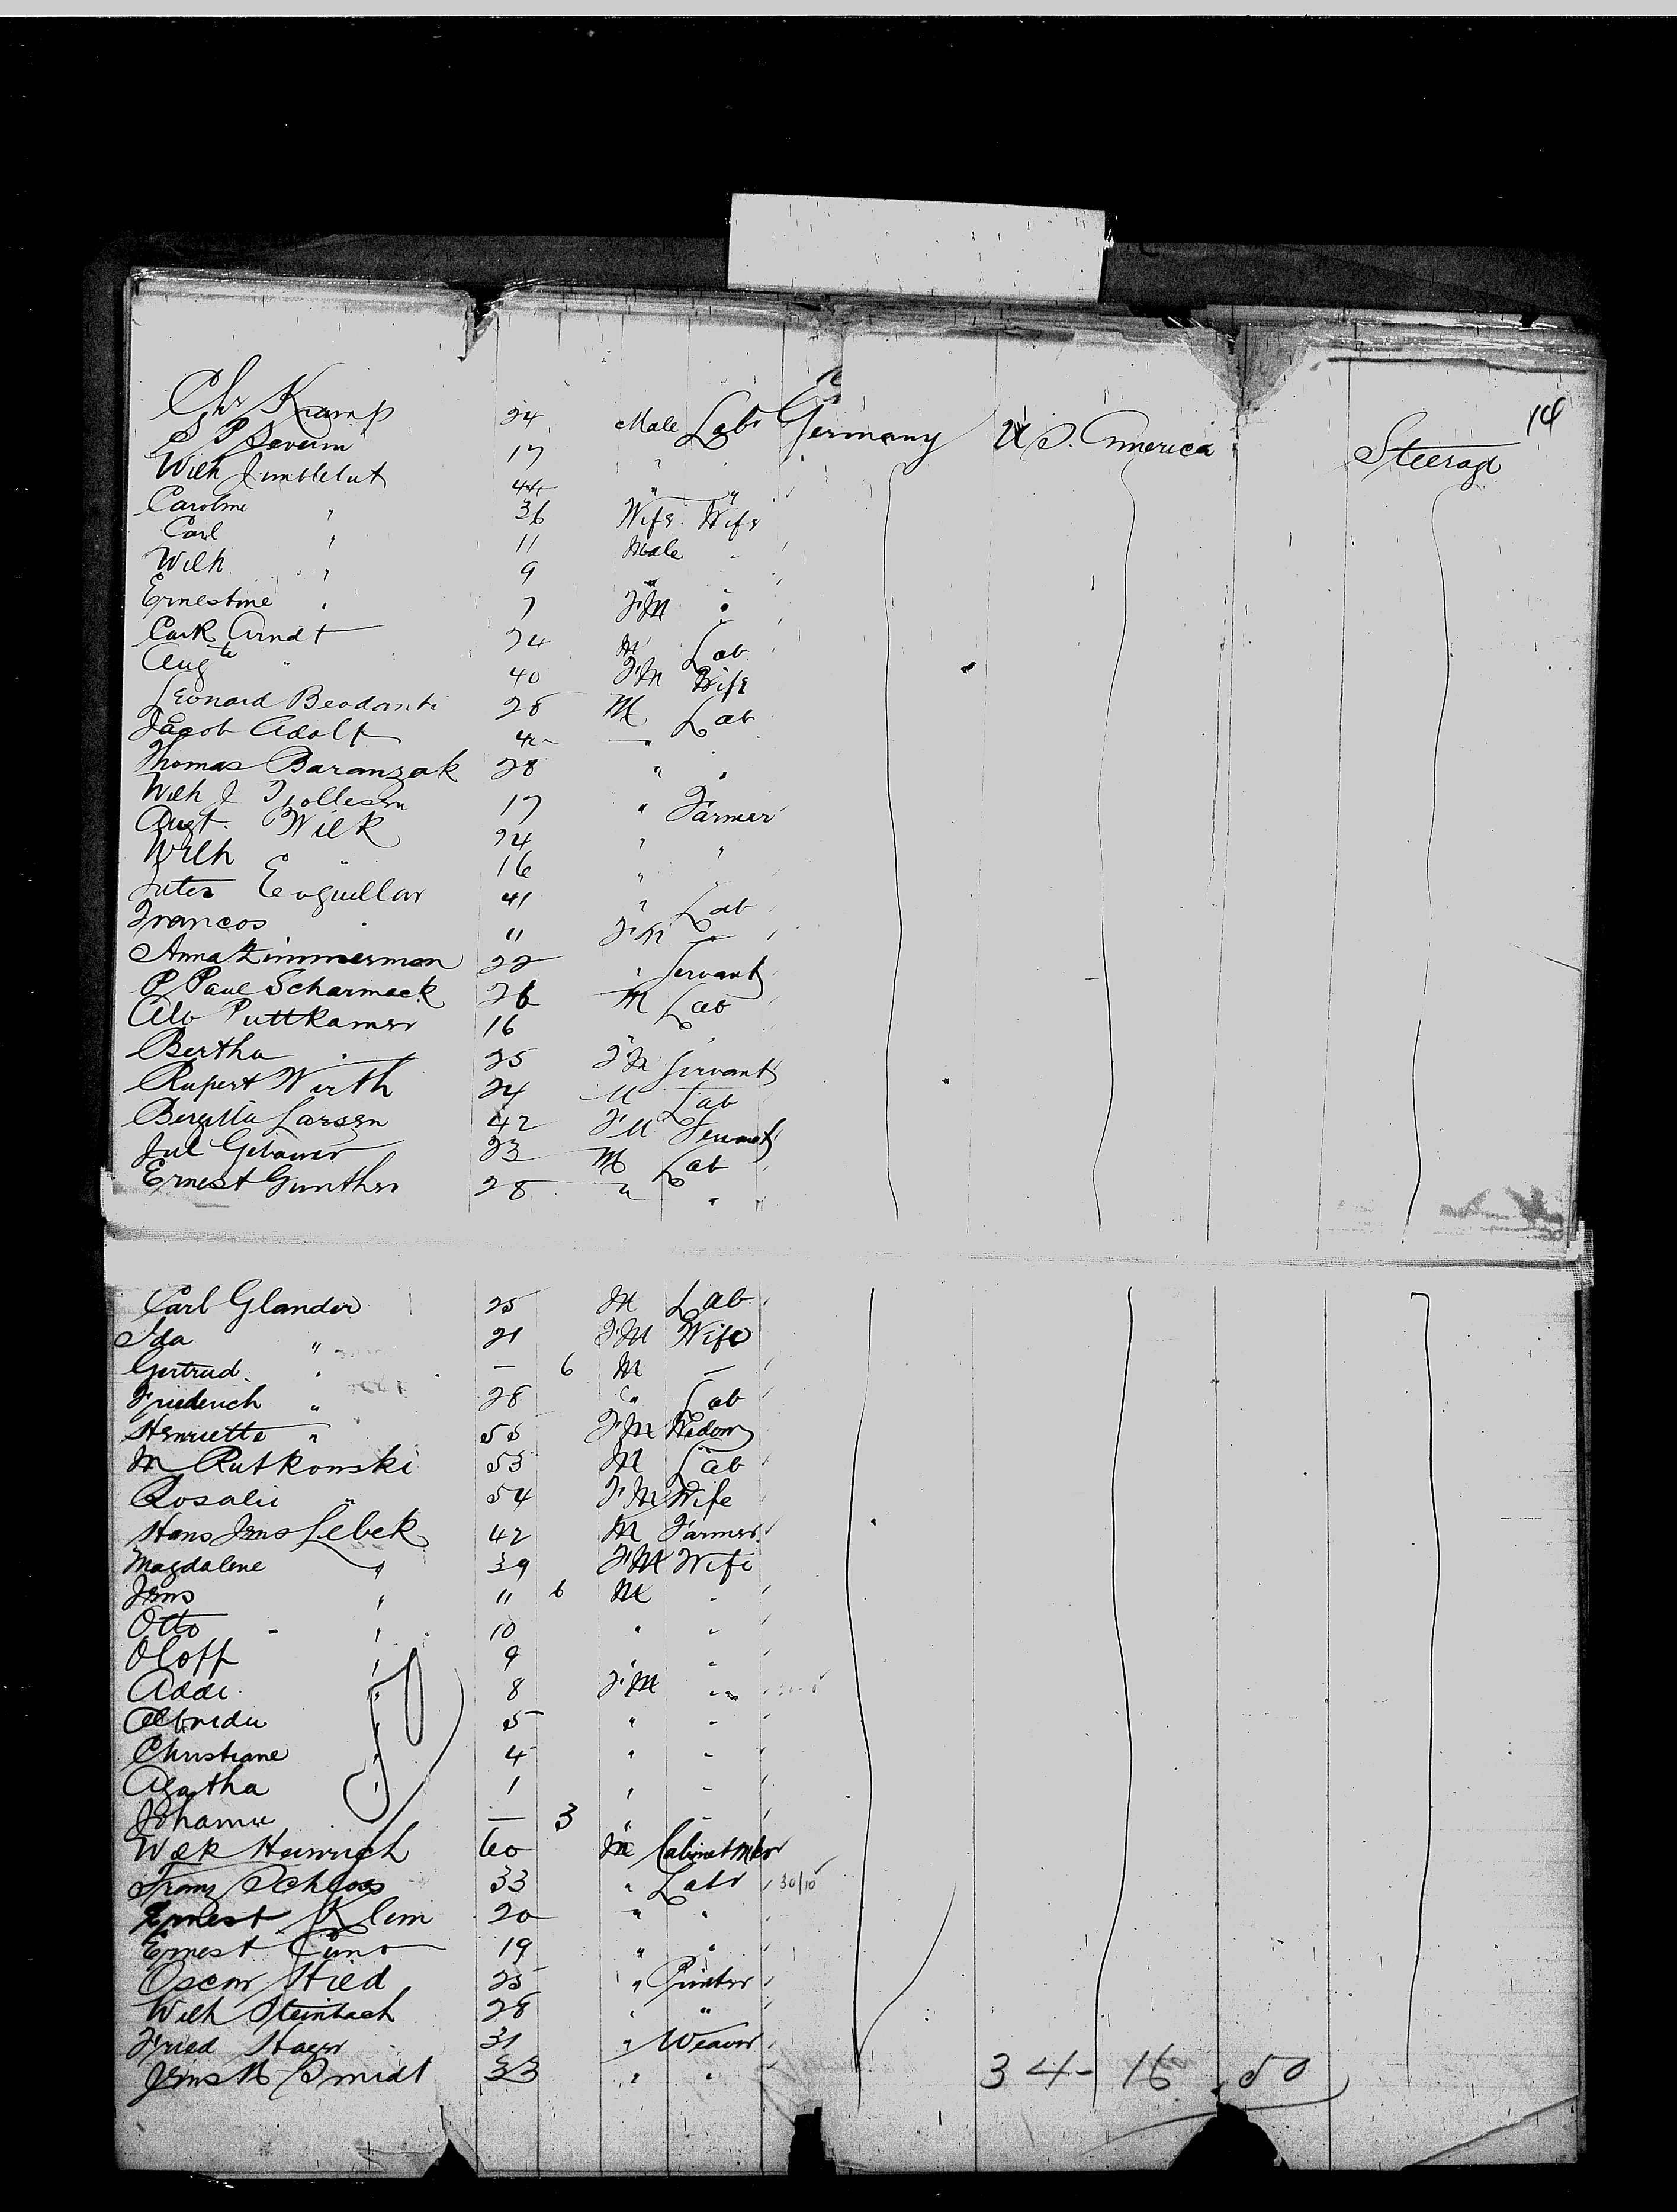 14
Chr Kramp 24 Male Labr Germany U S. America Steerage
S P Severin 17 " "
Wilh Jumblelut 44 " "
Caroline " 36 Wife Wife
Carl " 11 Male "
Wilh " 9 " "
Ernestine " 7 FM "
Carl Arndt 24 M Lab
Augte " 40 FM Wife
Leonard 28 M Lab
Jacob Adolf "
Thomas Baranzak 28 " "
Wilh J 17 " Farmer
Augt. Wilk 24 " "
Wilh " 16 " "
41 " Lab
" 11 FM
Anna Zimmerman 22 " Servant
P Paul Scharmack 26 M Lab
Alb Puttkamer 16 "
Bertha " 25 FM Servant
Rupert Wirth 24 M Lab
Bergitta Larsen 42 FM Servant
Jul Gebauer 23 M Lab
Ernest Gunther 28 " "
Carl Glander 25 M Lab
Ida " 21 FM Wife
Gertrud " — 6 M —
Friederich " 28 " Lab
Henriette " 55 FM Widow
M Rutkowski 53 M Lab
Rosalie " 54 FM Wife
Hans Jens Lebek 42 M Farmer
Magdalene " 39 FM Wife
Jens " 11 6 M "
Otto " 10 " "
Oloff " 9 " "
Addi " 8 FM "
" 5 " "
Christiane " 4 " "
Agatha " 1 " "
Johanne — 3 " "
Wilk Heinrich 60 M Cabinet Mkr
Franz Schloss 33 " Labr 30/10
Ernest Klein 20 " "
Ernest Cuno 19 " "
Oscar Hied 25 " Printer
Wilh Steinbach 28 " "
Fried Hager 31 " Weaver
Jens M Smidt 33 " "
34 - 16 50